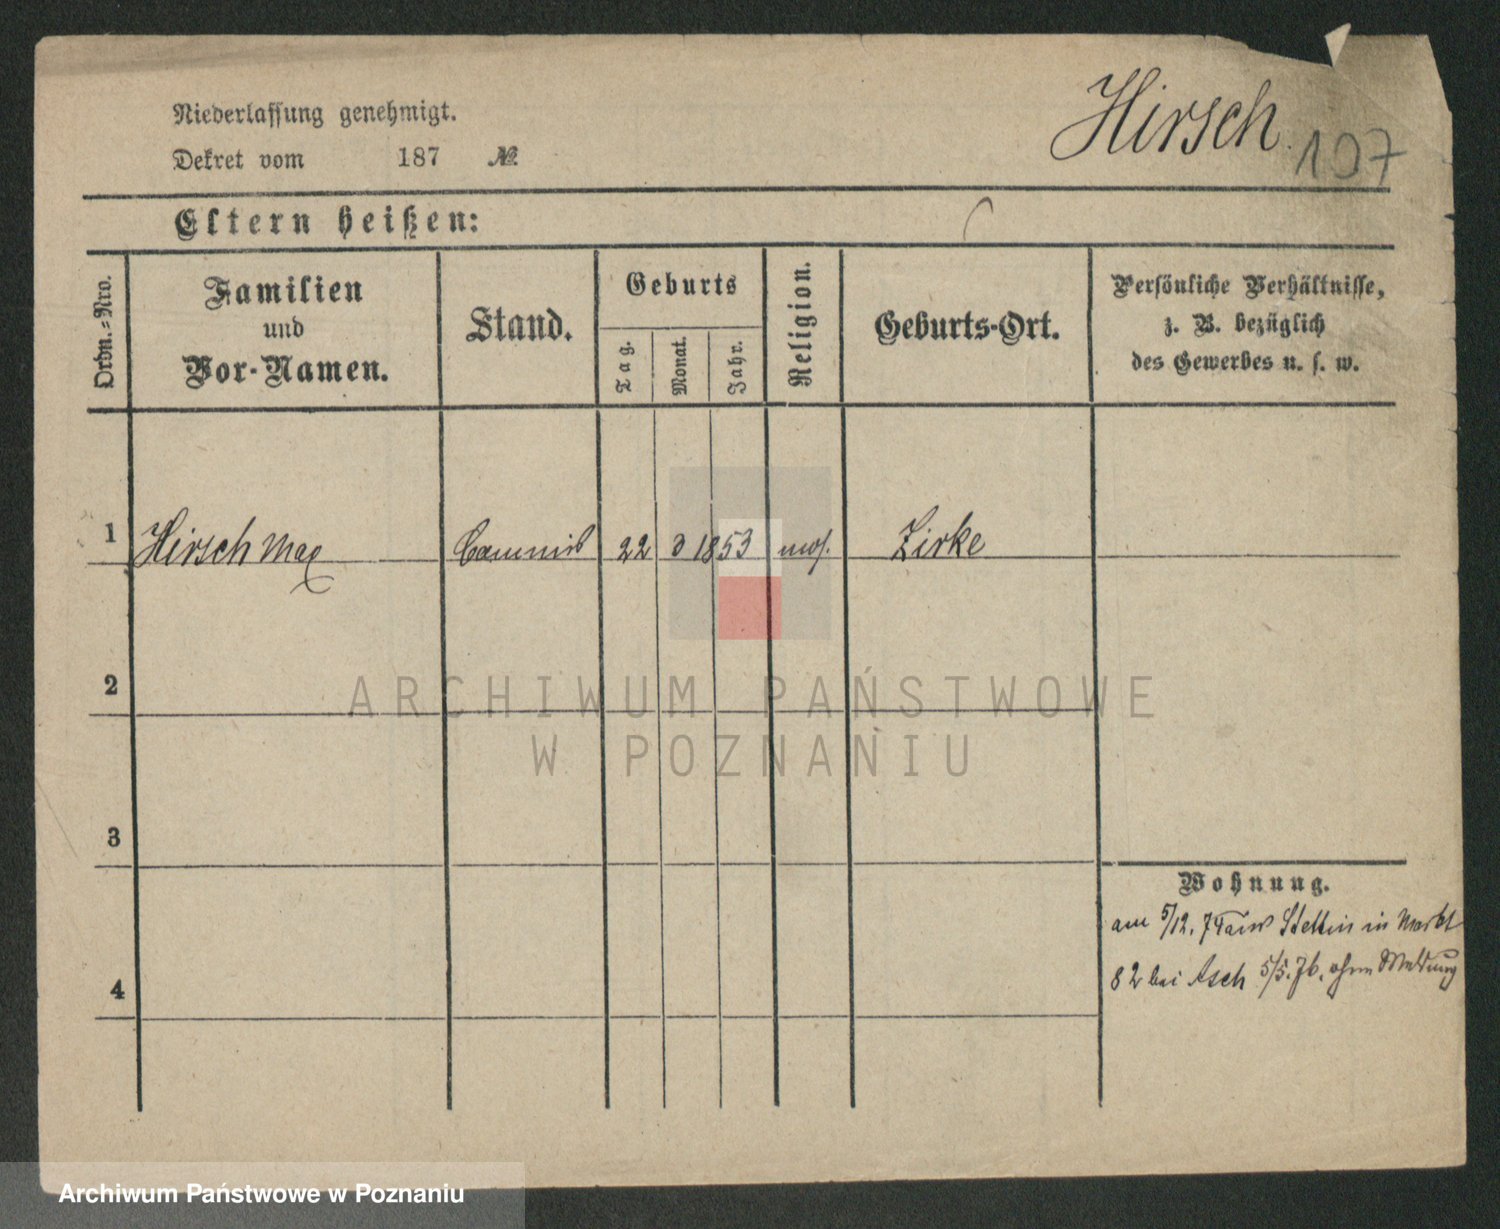 Niederlassung genehmigt.
Dekret vom 187 №
Hirsch.
107
Eltern heißen:
Ordn.=Nro.
Familien
und
Vor-Namen.
Stand.
Geburts
Tag.
Monat.
Jahr.
Religion.
Geburts-Ort.
Persönliche Verhältnisse,
z. B. bezüglich
des Gewerbes u. s. w.
1 Hirsch Max Commis 22 3 1853 mos. Zirke
2
ARCHIWUM PAŃSTWOWE
W POZNANIU
3
4
Wohnung.
am 5/12. 74 aus Stettin in Markt
82 bei Asch 5/5. 76. ohne Meldung
Archiwum Państwowe w Poznaniu